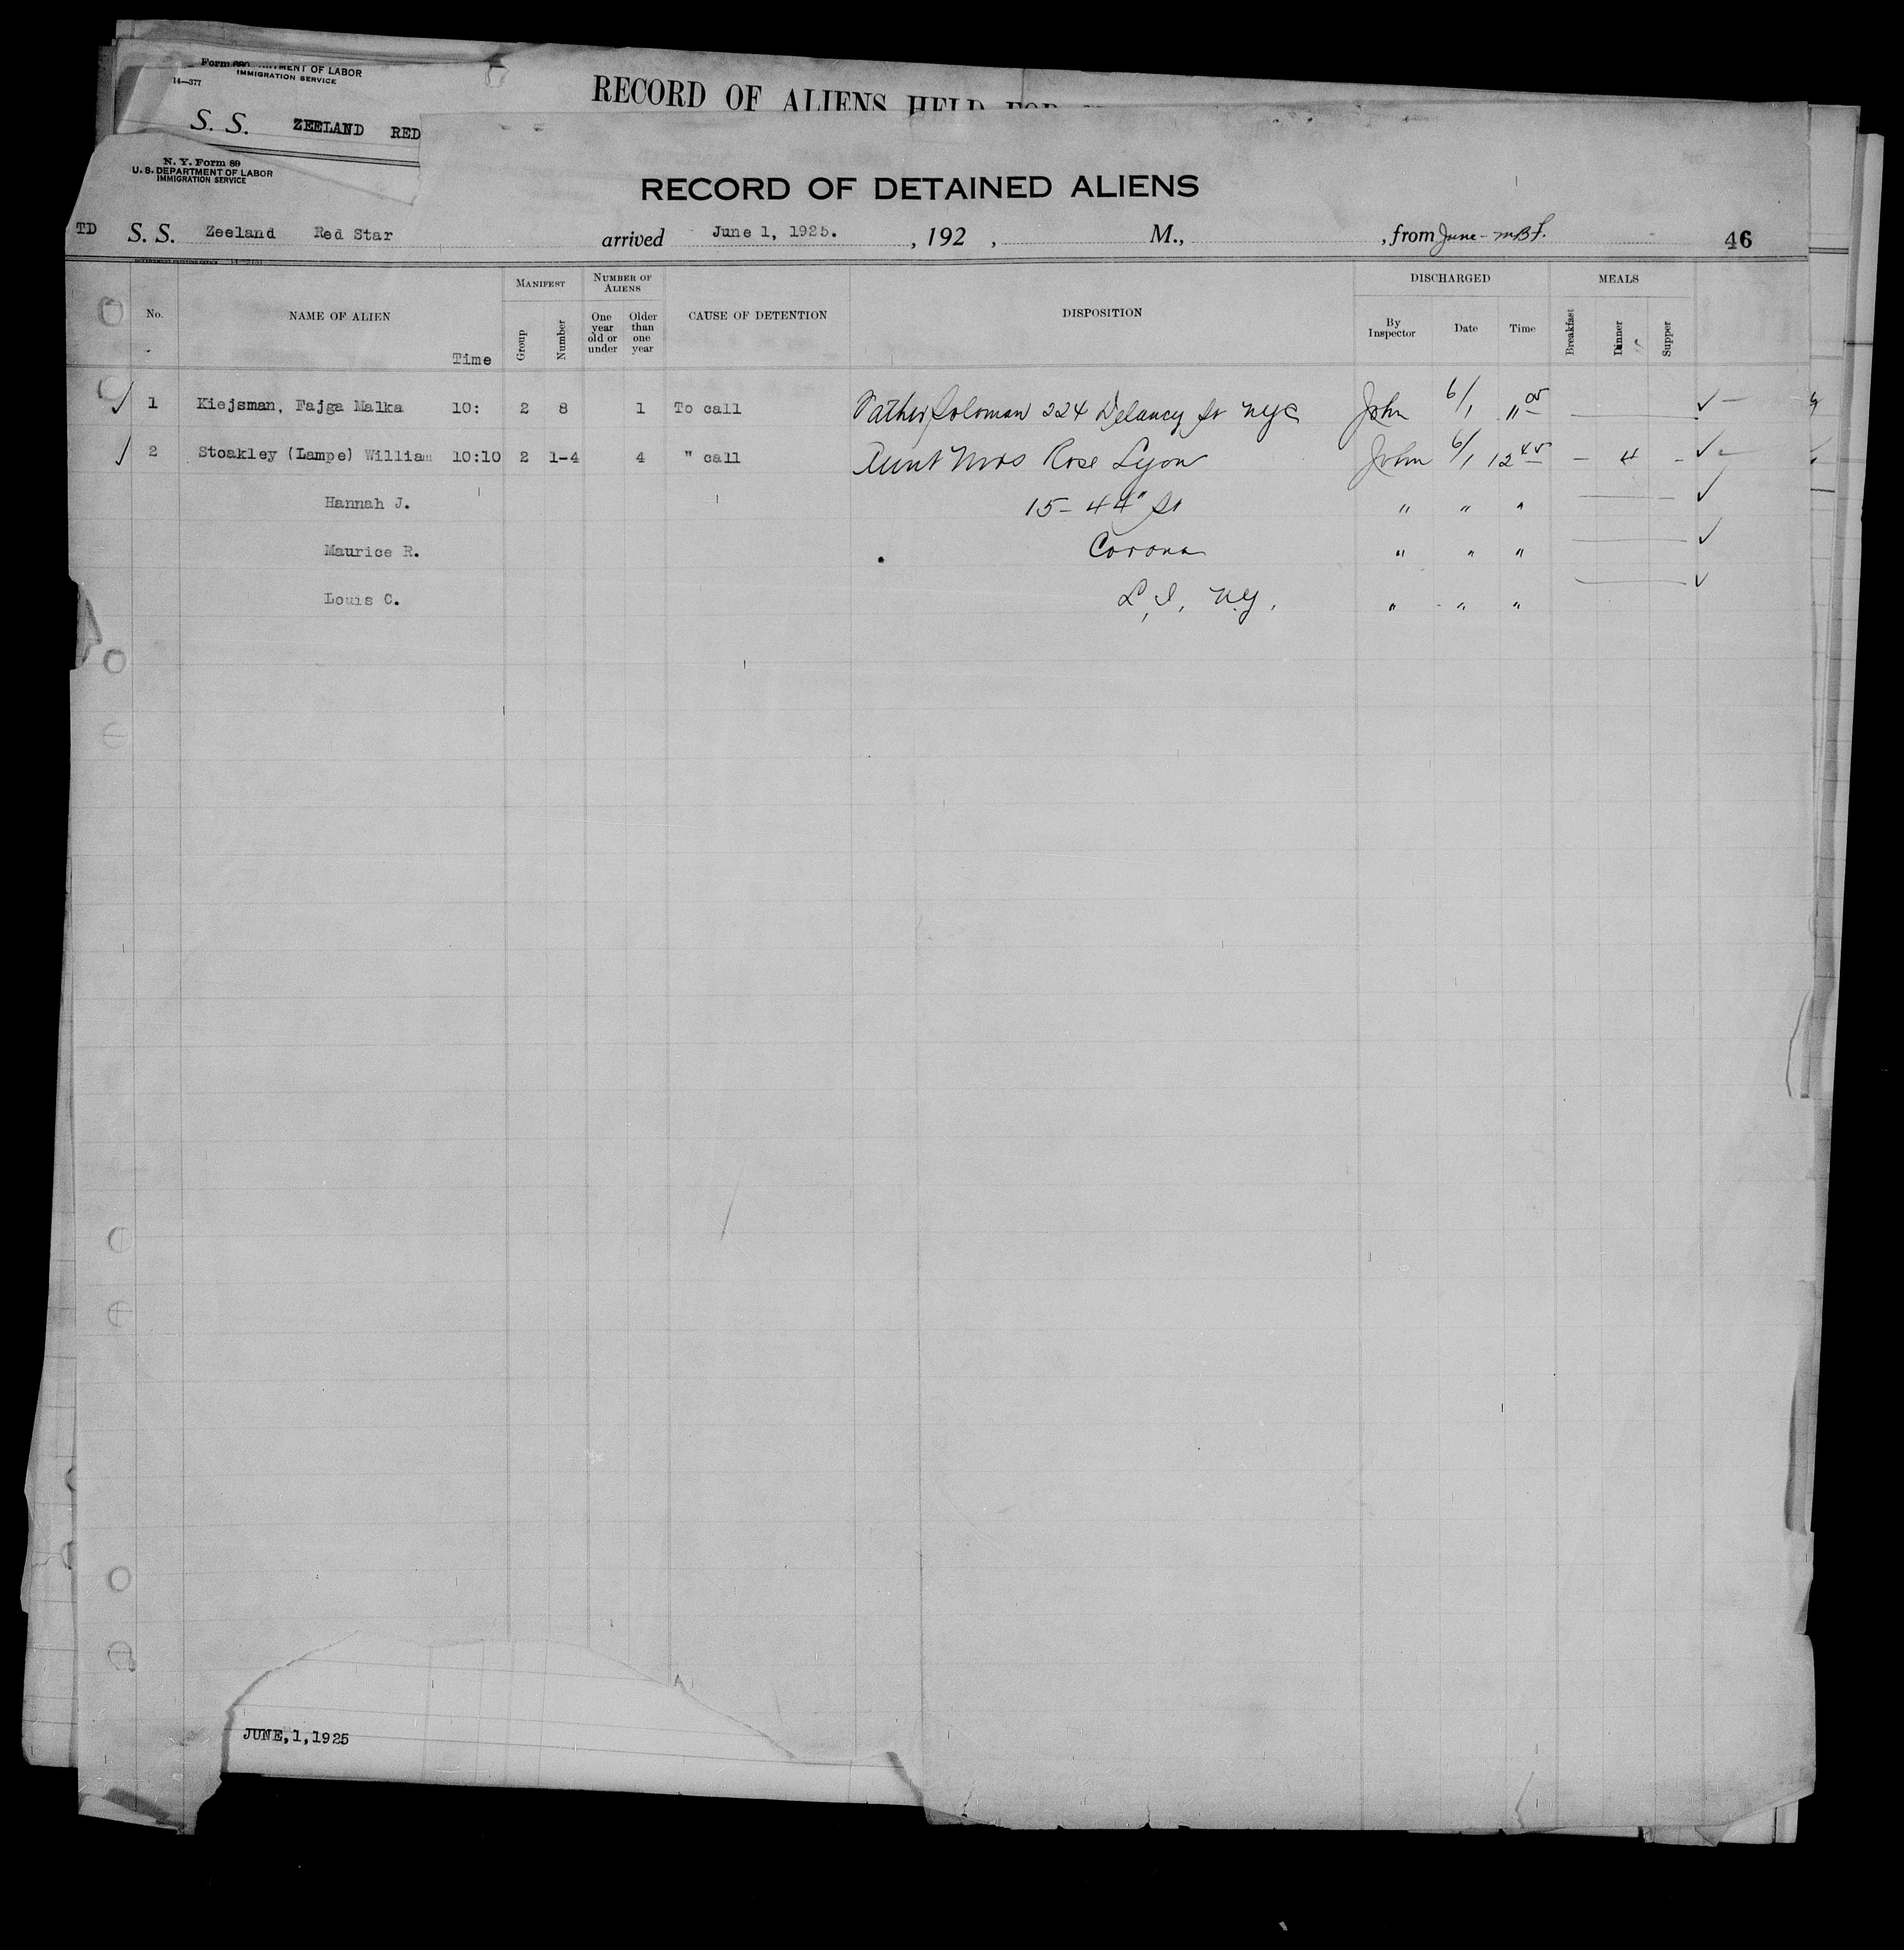 Form
DEPARTMENT OF LABOR
IMMIGRATION SERVICE
14—377
RECORD OF ALIENS HELD FOR
S. S. ZEELAND RED
N. Y. Form 89
U. S. DEPARTMENT OF LABOR
IMMIGRATION SERVICE
RECORD OF DETAINED ALIENS
TD S. S. Zeeland Red Star arrived June 1, 1925. , 192 , M., , from June - 46
No. NAME OF ALIEN Time MANIFEST Group Number NUMBER OF ALIENS One year old or under Older than one year CAUSE OF DETENTION DISPOSITION DISCHARGED By Inspector Date Time MEALS Breakfast Dinner Supper
1 Kiejsman, Fajga Malka 10: 2 8 1 To call Father Soloman 224 Delancy St NYC John 6/1 11 00
2 Stoakley (Lampe) William 10:10 2 1-4 4 " call Aunt Mrs Rose Lyon John 6/1 12 45 — 4 -
Hannah J. 15 - 44" St " " "
Maurice R. Corona " " "
Louis C. L, I, N.Y. " " "
JUNE,1,1925